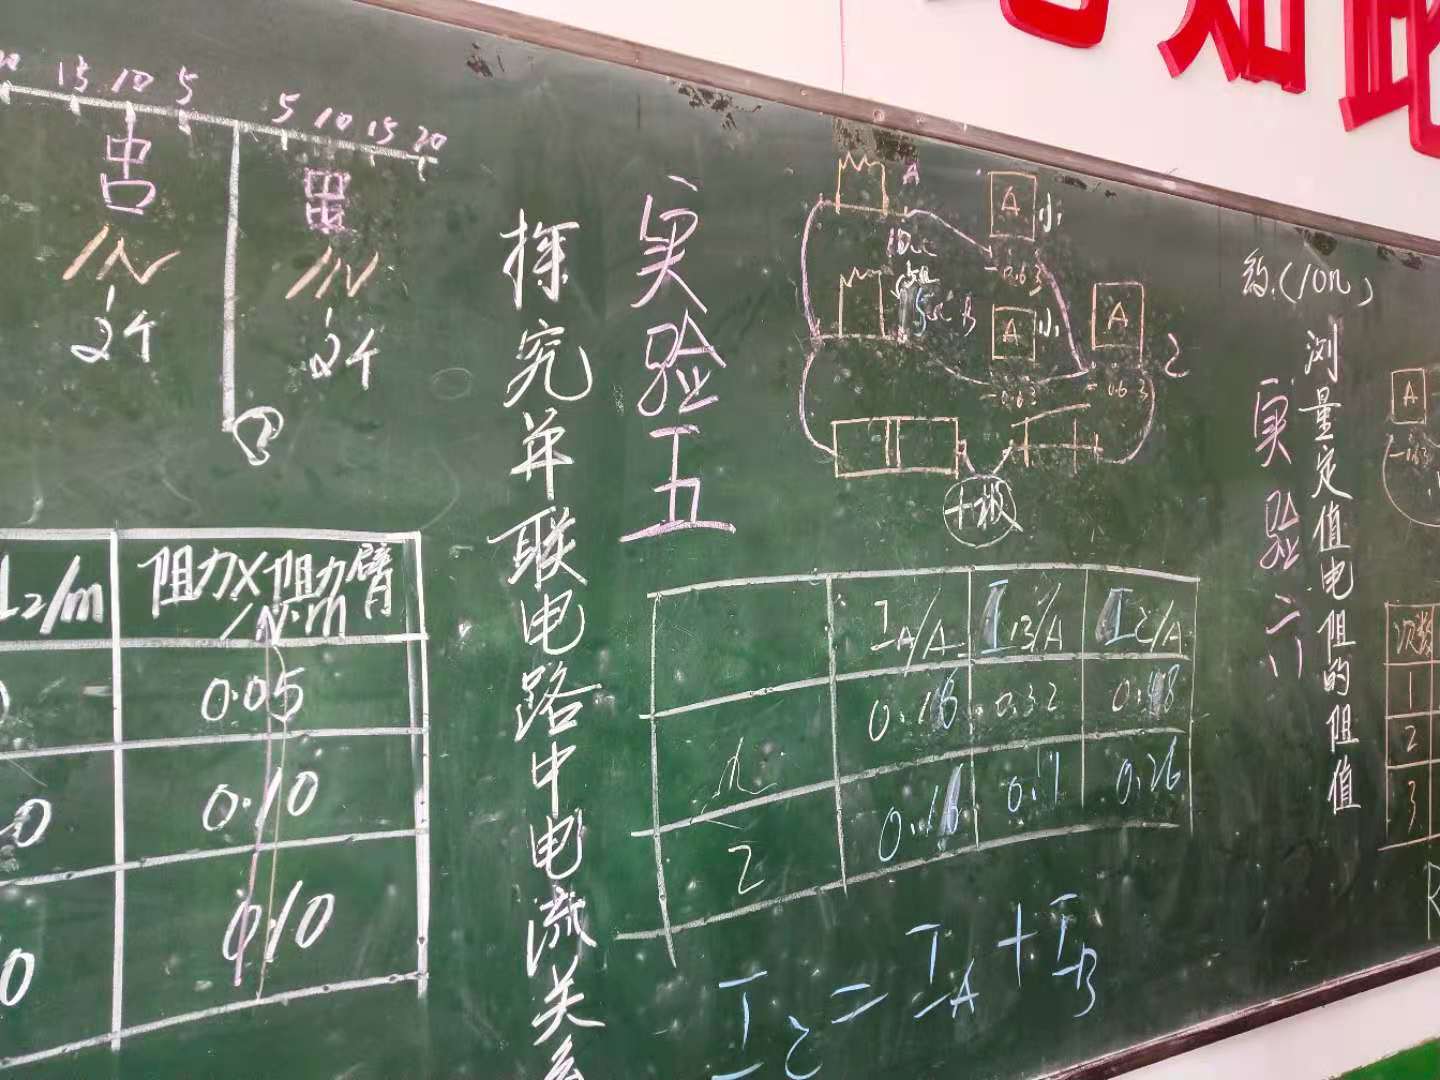 15 10 5 5 10 15 20
1N 1N
2个 2个
L2/m 阻力×阻力臂/N·m
0.05
0 0.10
0 0.10
实验五
探究并联电路中电流关系
A
A 小
10Ω
-0.63
5Ω B
A 小
-0.63
A
-0.63
+极
IA/A IB/A I2/A
0.16 0.32 0.48
0.16 0.1 0.26
2
I2=IA+IB
约(10Ω)
实验六
测量定值电阻的阻值
A
次数
1
2
3
R